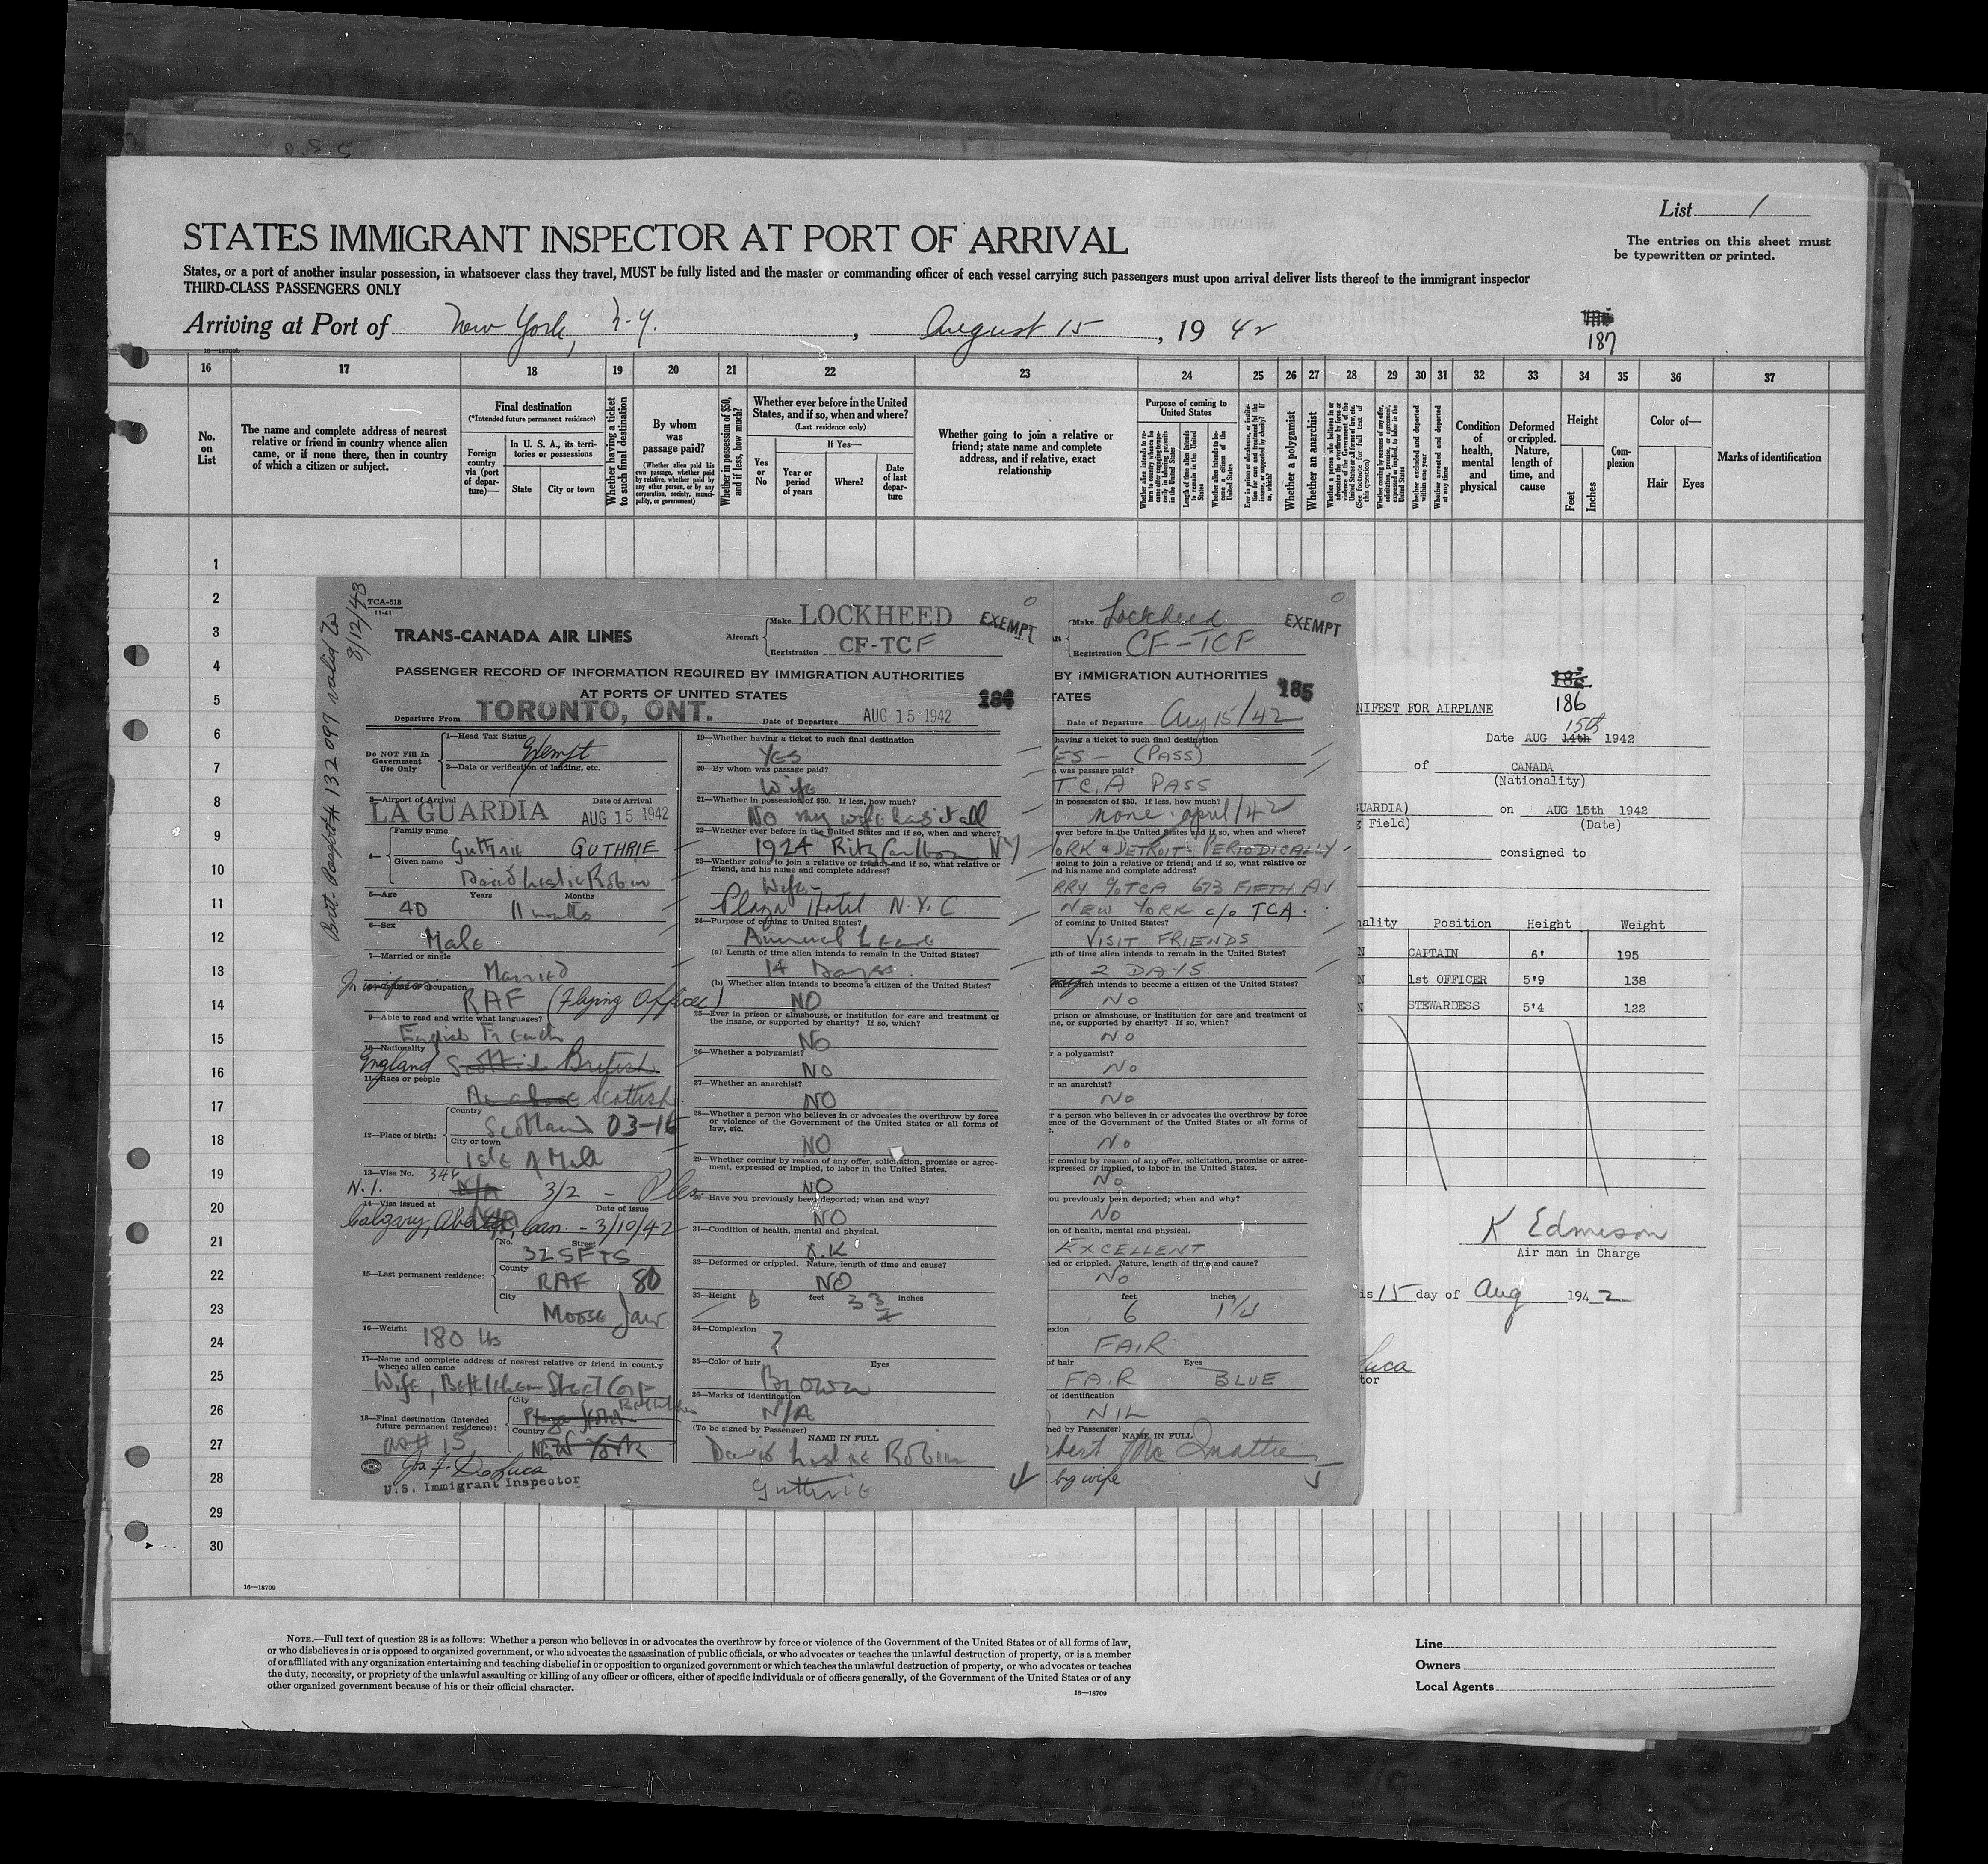 List 1
STATES IMMIGRANT INSPECTOR AT PORT OF ARRIVAL
The entries on this sheet must
be typewritten or printed.
States, or a port of another insular possession, in whatsoever class they travel, MUST be fully listed and the master or commanding officer of each vessel carrying such passengers must upon arrival deliver lists thereof to the immigrant inspector
THIRD-CLASS PASSENGERS ONLY
Arriving at Port of New York, N.Y., August 15, 1942
187
16 17 18 19 20 21 22 23 24 25 26 27 28 29 30 31 32 33 34 35 36 37
No. on List
The name and complete address of nearest relative or friend in country whence alien came, or if none there, then in country of which a citizen or subject.
Final destination
(*Intended future permanent residence)
Foreign country via (port of departure)—
In U. S. A., its territories or possessions
State
City or town
Whether having a ticket to such final destination
By whom was passage paid?
(Whether alien paid his own passage, whether paid by relative, whether paid by any other person, or by any corporation, society, municipality, or government)
Whether in possession of $50, and if less, how much?
Whether ever before in the United States, and if so, when and where?
(Last residence only)
Yes or No
If Yes—
Year or period of years
Where?
Date of last departure
Whether going to join a relative or friend; state name and complete address, and if relative, exact relationship
Purpose of coming to United States
Length of time alien intends to remain in the United States
Whether alien intends to become a citizen of the United States
Whether a polygamist
Whether an anarchist
Whether arrested and deported at any time
Condition of health, mental and physical
Deformed or crippled. Nature, length of time, and cause
Height
Feet
Inches
Complexion
Color of—
Hair
Eyes
Marks of identification
1
2
3
4
5
6
7
8
9
10
11
12
13
14
15
16
17
18
19
20
21
22
23
24
25
26
27
28
29
30
Brit. Passport # 132097 valid to
8/12/43
TCA-518
11-41
TRANS-CANADA AIR LINES
Aircraft
Make LOCKHEED
Registration CF-TCF
EXEMPT
PASSENGER RECORD OF INFORMATION REQUIRED BY IMMIGRATION AUTHORITIES
AT PORTS OF UNITED STATES
184
Departure From TORONTO, ONT. Date of Departure AUG 15 1942
Do NOT Fill In Government Use Only
1—Head Tax Status Exempt
2—Data or verification of landing, etc.
3—Airport of Arrival LA GUARDIA Date of Arrival AUG 15 1942
4— Family name Guthrie GUTHRIE
Given name David Leslie Robin
5—Age Years Months
40 11 months
6—Sex
Male
7—Married or single
Married
occupation
RAF (Flying Officer)
9—Able to read and write what languages?
English French
10—Nationality
England British
11—Race or people
Scottish
12—Place of birth:
Country
Scotland 03-16
City or town
Isle of Mull
13—Visa No.
3/2
14—Visa issued at Date of issue
Calgary, Can. - 3/10/42
15—Last permanent residence:
No. Street
32 SFTS
County
RAF 80
City
Moose Jaw
16—Weight
180 lbs
17—Name and complete address of nearest relative or friend in country whence alien came
Wife, Bethlehem Steel Corp
18—Final destination (Intended future permanent residence):
City
Bethlehem
Country
New York
as # 15
Jos. F. DeLuca
U.S. Immigrant Inspector
19—Whether having a ticket to such final destination
YES
20—By whom was passage paid?
Wife
21—Whether in possession of $50. If less, how much?
No my wife has it all
22—Whether ever before in the United States and if so, when and where?
1924 Ritz Carlton NY
23—Whether going to join a relative or friend, and if so, what relative or friend, and his name and complete address?
Wife-
Plaza Hotel N.Y.C.
24—Purpose of coming to United States?
Annual Leave
(a) Length of time alien intends to remain in the United States?
14 Days.
(b) Whether alien intends to become a citizen of the United States?
NO
25—Ever in prison or almshouse, or institution for care and treatment of the insane, or supported by charity? If so, which?
NO
26—Whether a polygamist?
NO
27—Whether an anarchist?
NO
28—Whether a person who believes in or advocates the overthrow by force or violence of the Government of the United States or all forms of law, etc.
NO
29—Whether coming by reason of any offer, solicitation, promise or agreement, expressed or implied, to labor in the United States.
NO
30—Have you previously been deported; when and why?
NO
31—Condition of health, mental and physical.
O.K
32—Deformed or crippled. Nature, length of time and cause?
NO
33—Height 6 feet 3 3/4 inches
34—Complexion
?
35—Color of hair Eyes
Brown
36—Marks of identification
N/A
(To be signed by Passenger)
NAME IN FULL
David Leslie Robin
Guthrie
Make Lockheed
Registration CF-TCF
EXEMPT
BY IMMIGRATION AUTHORITIES
TATES
185
Date of Departure Aug 15/42
having a ticket to such final destination
ES - (PASS)
n was passage paid?
T.C.A PASS
in possession of $50. If less, how much?
none - april/42
ever before in the United States and if so, when and where?
ORK & DETROIT - PERIODICALLY
going to join a relative or friend; and if so, what relative or
nd his name and complete address?
RRY % TCA 673 FIFTH AV
NEW YORK c/o TCA.
of coming to United States?
VISIT FRIENDS
gth of time alien intends to remain in the United States?
2 DAYS
alien intends to become a citizen of the United States?
NO
prison or almshouse, or institution for care and treatment of
ne, or supported by charity? If so, which?
NO
r a polygamist?
No
er an anarchist?
No
r a person who believes in or advocates the overthrow by force
ence of the Government of the United States or all forms of
No
r coming by reason of any offer, solicitation, promise or agree-
expressed or implied, to labor in the United States.
No
ou previously been deported; when and why?
No
on of health, mental and physical.
EXCELLENT
ed or crippled. Nature, length of time and cause?
No
feet inches
6 1 1/4
exion
FAIR
of hair Eyes
FAIR BLUE
of identification
NIL
ned by Passenger) NAME IN FULL
by wife
186
NIFEST FOR AIRPLANE
15th
Date AUG 14th 1942
of CANADA
(Nationality)
UARDIA) on AUG 15th 1942
g Field) (Date)
consigned to
nality Position Height Weight
N CAPTAIN 6' 195
N 1st OFFICER 5'9 138
N STEWARDESS 5'4 122
K Edmison
Air man in Charge
is 15 day of Aug 1942
Luca
tor
16—18709
NOTE.—Full text of question 28 is as follows: Whether a person who believes in or advocates the overthrow by force or violence of the Government of the United States or of all forms of law,
or who disbelieves in or is opposed to organized government, or who advocates the assassination of public officials, or who advocates or teaches the unlawful destruction of property, or is a member
of or affiliated with any organization entertaining and teaching disbelief in or opposition to organized government or which teaches the unlawful destruction of property, or who advocates or teaches
the duty, necessity, or propriety of the unlawful assaulting or killing of any officer or officers, either of specific individuals or of officers generally, of the Government of the United States or of any
other organized government because of his or their official character.
16—18709
Line
Owners
Local Agents